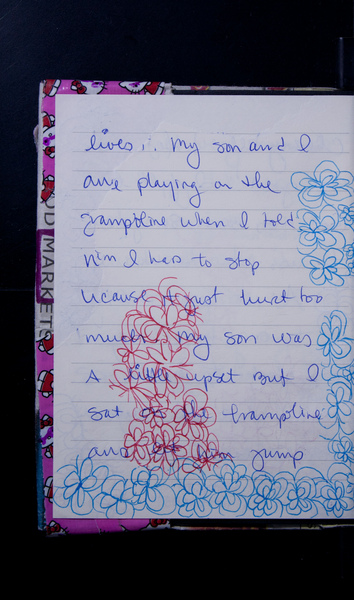 lives. My son and I
are playing on the
trampoline when I told
him I has to stop
because it just hurt too
much. My son was
a little upset But I
sat on the trampoline
and let him jump
OD MARKET